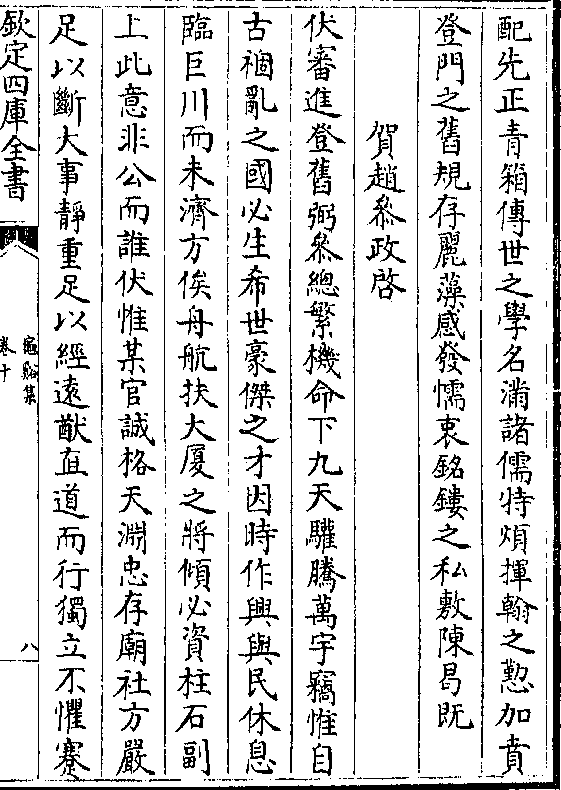 配先正青箱傳世之學名滿諸儒特煩揮翰之懃加賁
登門之舊規存麗藻感發懦衷銘鏤之私敷陳曷既
賀趙叅政啓
伏審進登舊弼叅總繁機命下九天驩騰萬宇竊惟自
古禍亂之國必生希世豪傑之才因時作興與民休息
臨巨川而未濟方俟舟航扶大厦之將傾必資柱石副
上此意非公而誰伏惟某官誠格天淵忠存廟社方嚴
足以斷大事靜重足以經遠猷直道而行獨立不懼蹇
欽定四庫全書
龜谿集
卷十
八